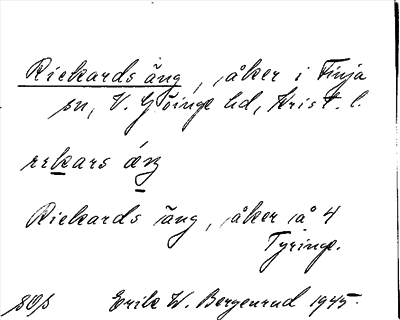 Rickards äng, åker i Finja
sn, V. Göinge hd, Krist. l.
rekars áŋ
Rickards äng, åker å 4
Tyringe.
Erik W. Bergenrud 1945.